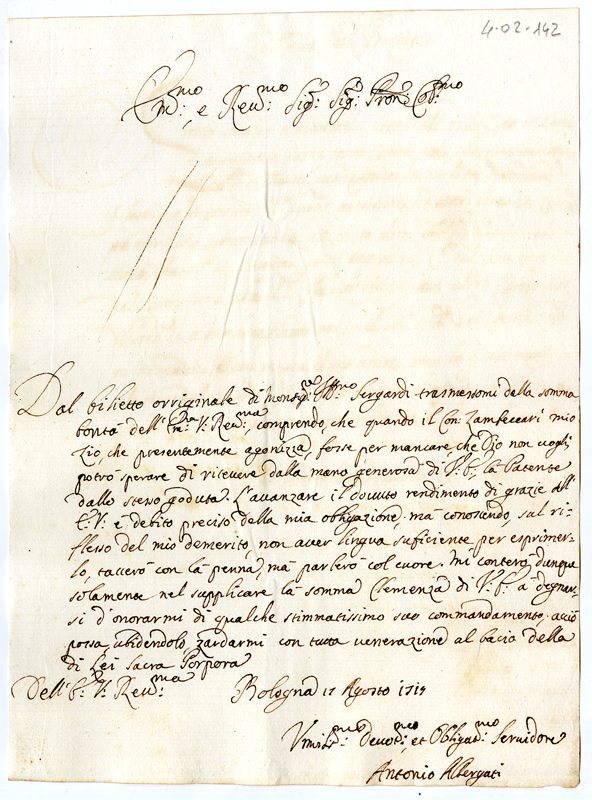 4-02-142
E.mo: e Reu.mo: Sig.r: Sig.r: Pron: Col.mo:
Dal bilietto orriginale di Monsig.re Ill.mo Sergardi trasmessomi della somma
bontà dell' Em.za V: Reu.ma, comprendo, che quando il Con: Zambeccari mio
Zio, che presentemente agonizza, fosse per mancare, che Dio non voglj
potrò sperare di ricevere dalla mano generosa di V: E: la Patente
dallo stesso goduta. L'avanzare il dovuto rendimento di grazie all'
E: V: è debito preciso della mia obligazione, mà conoscendo, sul ri-
flesso del mio demerito, non aver lingua suficiente per esprimer-
lo, tacerò con la penna, ma parlerò col cuore. Mi conterò dunque
solamente nel supplicare la somma Clemenza di V: E: a degnar-
si d'onorarmi di qualche stimmatissimo suo commandamento, acciò
possa, ubidendolo, zardarmi con tutta venerazione al bacio della
di Lei Sacra Porpora
Dell' E: V: Reu.ma: Bologna 17 Agosto 1717
Vmilis.mo: Deuot.mo: et Obligat.mo: Seruidore
Antonio Albergati